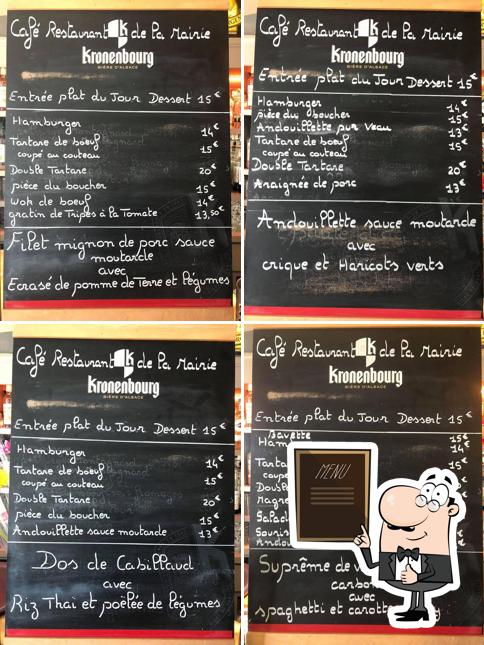 Café Restaurant k de la Mairie
Kronenbourg
BIÈRE D'ALSACE
Entrée plat du Jour Dessert 15€
Hamburger 14€
Tartare de boeuf
coupé au couteau 15€
Double Tartare 20€
pièce du boucher 15€
wok de boeuf 14€
gratin de Tripes à la Tomate 13,50€
Filet mignon de porc sauce
moutarde
avec
Ecrasé de pomme de Terre et légumes
Café Restaurant k de la Mairie
Kronenbourg
BIÈRE D'ALSACE
Entrée plat du Jour Dessert 15€
Hamburger 14€
pièce du boucher 15€
Andouillette pur Veau 13€
Tartare de boeuf 15€
coupé au couteau
Double Tartare 20€
Araignée de porc 13€
Andouillette sauce moutarde
avec
crique et Haricots verts
Café Restaurant k de la Mairie
Kronenbourg
BIÈRE D'ALSACE
Entrée plat du Jour Dessert 15€
Hamburger 14€
Tartare de boeuf
coupé au couteau 15€
Double Tartare 20€
pièce du boucher 15€
Andouillette sauce moutarde 13€
Dos de Cabillaud
avec
Riz Thaï et poêlée de légumes
Café Restaurant k de la Mairie
Kronenbourg
BIÈRE D'ALSACE
Entrée plat du Jour Dessert 15€
Bavette 15€
Ham 14€
Tarta 15€
coupé
Doub
Magre
Salad
Souris
Andou
MENU
Suprême de v
carbo
avec
spaghetti et carott